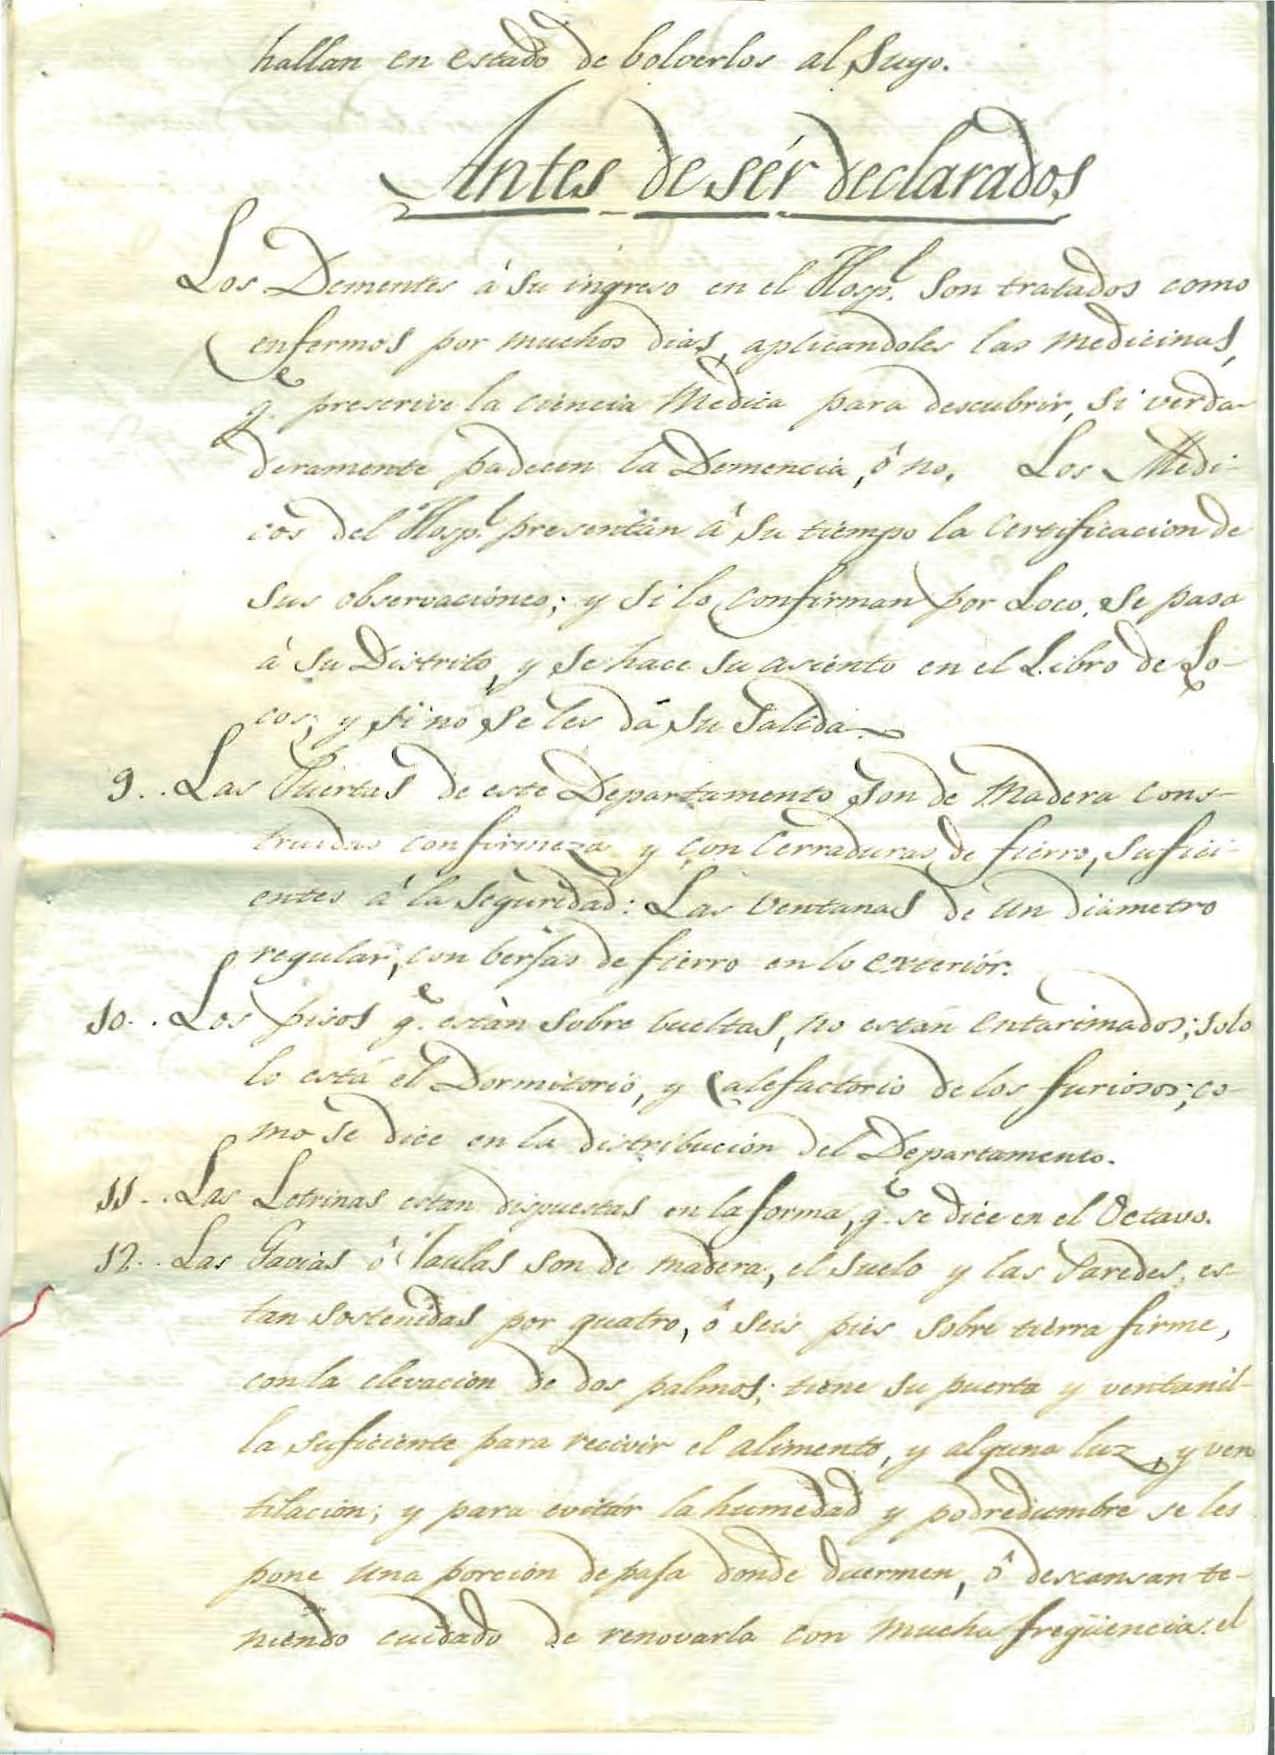 hallan en estado de bolverlos al Suyo.
Antes de sér declarados
Los Dementes á su ingreso en el Hosp.l son tratados como
enfermos por muchos dias, aplicandoles las medicinas,
q.e prescrive la ciencia Medica para descubrir, si verda-
deramente padecen la Demencia, ó no. Los Medi-
cos del Hosp.l presentan á su tiempo la Certificacion de
sus observaciones; y si lo confirman por Loco, se pasa
á su Distrito, y se hace su asiento en el Libro de Lo-
cos; y si no se les dá su salida.
9.. Las Puertas de este Departamento son de Madera cons-
truidas con firmeza y con Cerraduras de fierro, sufici-
entes á la seguridad: Las Ventanas de un diametro
regular, con berjas de fierro en lo exterior.
10.. Los pisos q.e están sobre bueltas, no están entarimados; solo
lo está el Dormitorio, y Calefactorio de los furiosos; co-
mo se dice en la distribución del Departamento.
11.. Las Letrinas estan dispuestas en la forma, q.e se dice en el Octavo.
12.. Las Gavias ó Jaulas son de madera, el suelo y las Paredes, es-
tan sostenidas por quatro, ó seis pies sobre tierra firme,
con la elevacion de dos palmos; tiene su puerta y ventanil-
la suficiente para recivir el alimento, y alguna luz, y ven
tilacion; y para evitár la humedad y podredumbre se les
pone una porcion de paja donde duermen, ó descansan te-
niendo cuidado de renovarla con mucha freqüencia: el